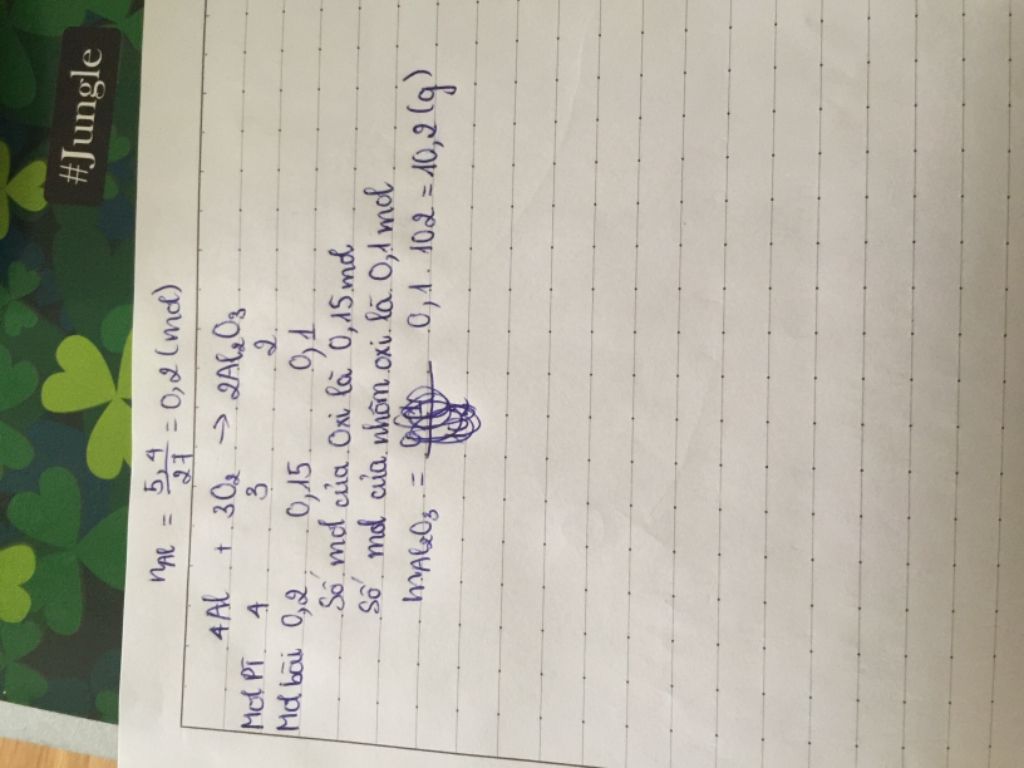 #Jungle
nAl = 5,4/27 = 0,2 (mol)
4Al + 3O2 → 2Al2O3
Mol PT 4 3 2
Mol bài 0,2 0,15 0,1
Số mol của Oxi là 0,15 mol
Số mol của nhôm oxi là 0,1 mol
mAl2O3 = 0,1 . 102 = 10,2 (g)